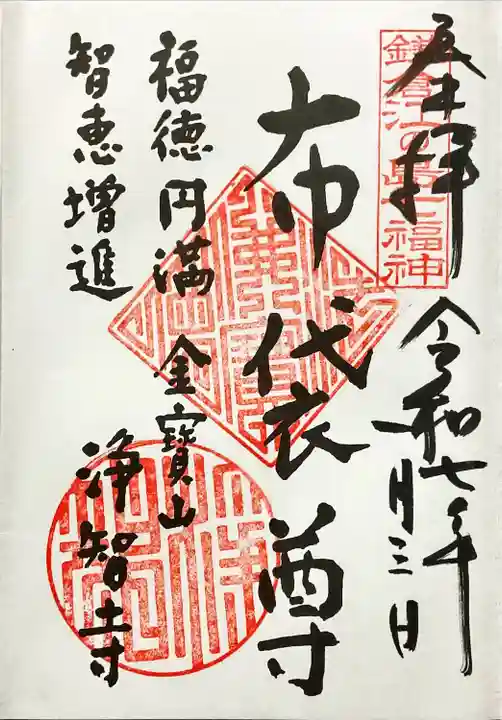 奉拝
鎌倉江の島七福神
令和七年
月三日
布袋尊
福徳円満
智恵増進
金寶山
浄智寺